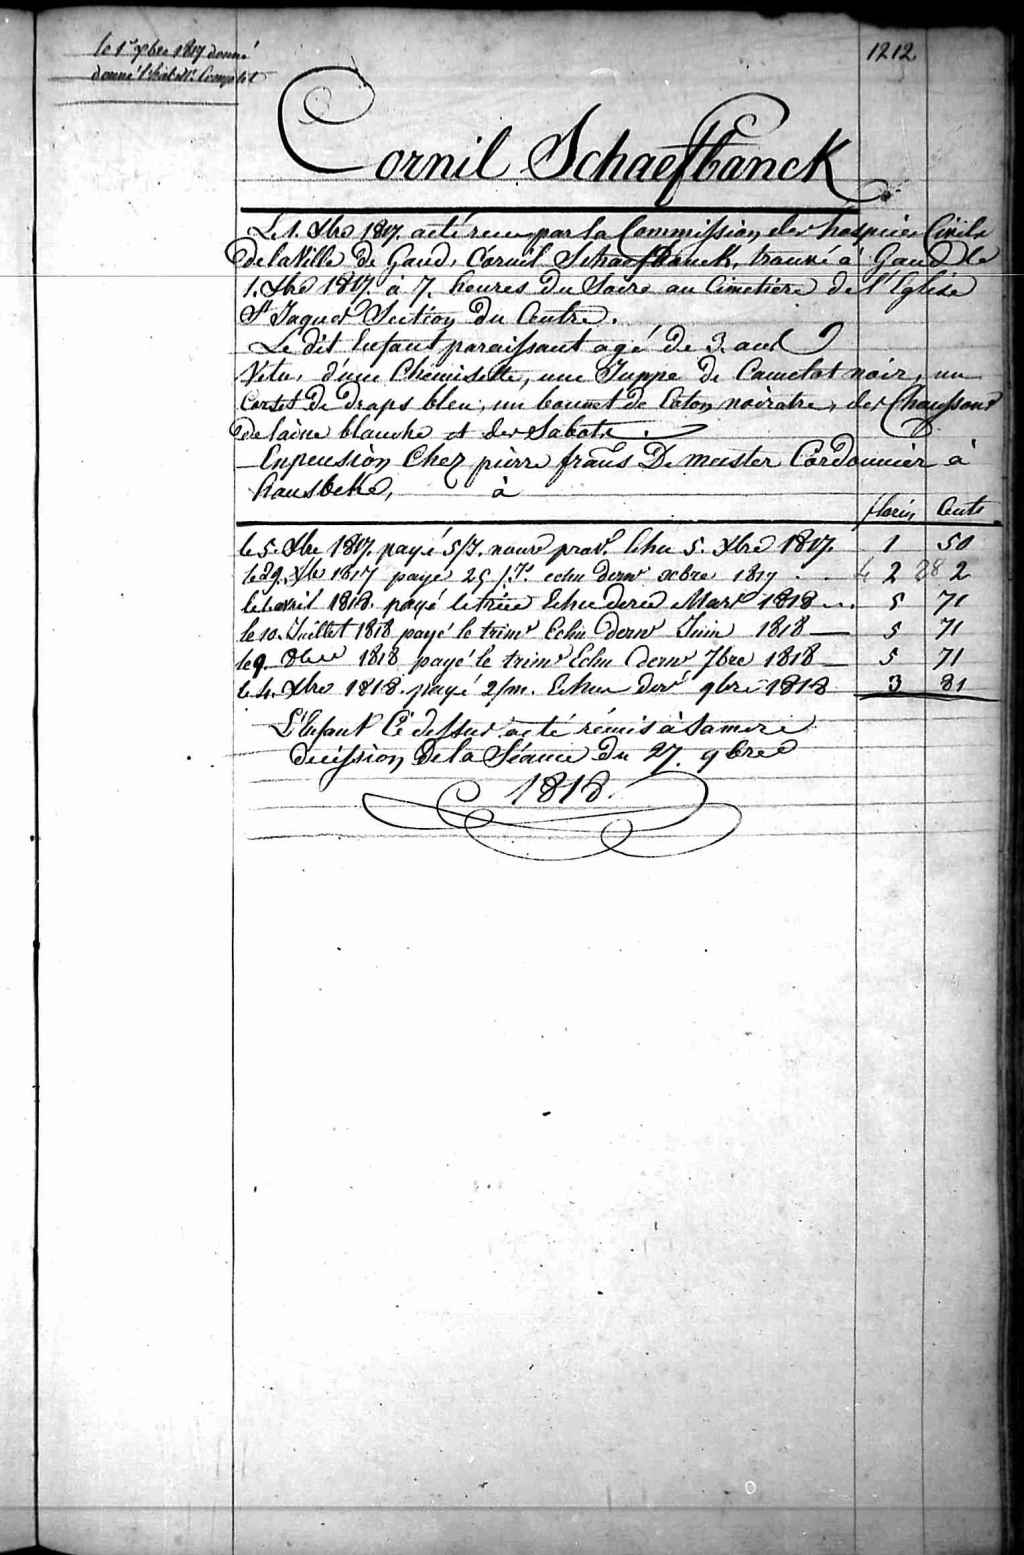 le 1er xbre 1817 donné
donné
1212
Cornil Schaefbanck
Le 1. Xbre 1817. a eté recu par la Commission des hospices Civils
de la Ville de Gand, Cornil Schaefbanck, trouvé à Gand le
1. Xbre 1817 à 7. heures du Soire au Cimetière de l'Eglise
St Jaques Section du Centre.
Le dit Enfant paraissant agé de 3. ans
Vetu, d'une Chemisette, une Juppe de Camelot noir, un
Corset de draps bleu, un bonnet de Coton noiratre, des Chaussons
de laine blanche et des Sabots.
En pension Chez pierre frans De meester Cordonnier à
hansbeke, à
florin Cents
le 5. Xbre 1817. payé 5/J. nourr prov. Echu 5. Xbre 1817. 1 50
le 29. Xbre 1817 payé 25/Js echu dernr xbre 1817 . . . 4 2 28 2
le 1. avril 1818. payé le trim Echu dern Mars 1818 ... 5 71
le 10. Juillet 1818 payé le trimr Echu dernr Juin 1818 — 5 71
le 9. 8bre 1818 payé le trimr Echu dernr 7bre 1818 — 5 71
le 4. Xbre 1818. payé 2/m. Echu derr 9bre 1818 3 81
L'Enfant Cé dessus a eté rémis à Sa mere
décission de la Séance du 27. 9bre
1818.